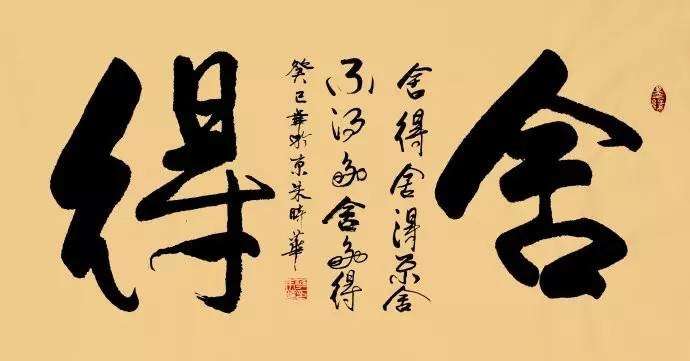 舍
舍得舍得不舍
不得多舍多得
癸巳年於京朱時華
得